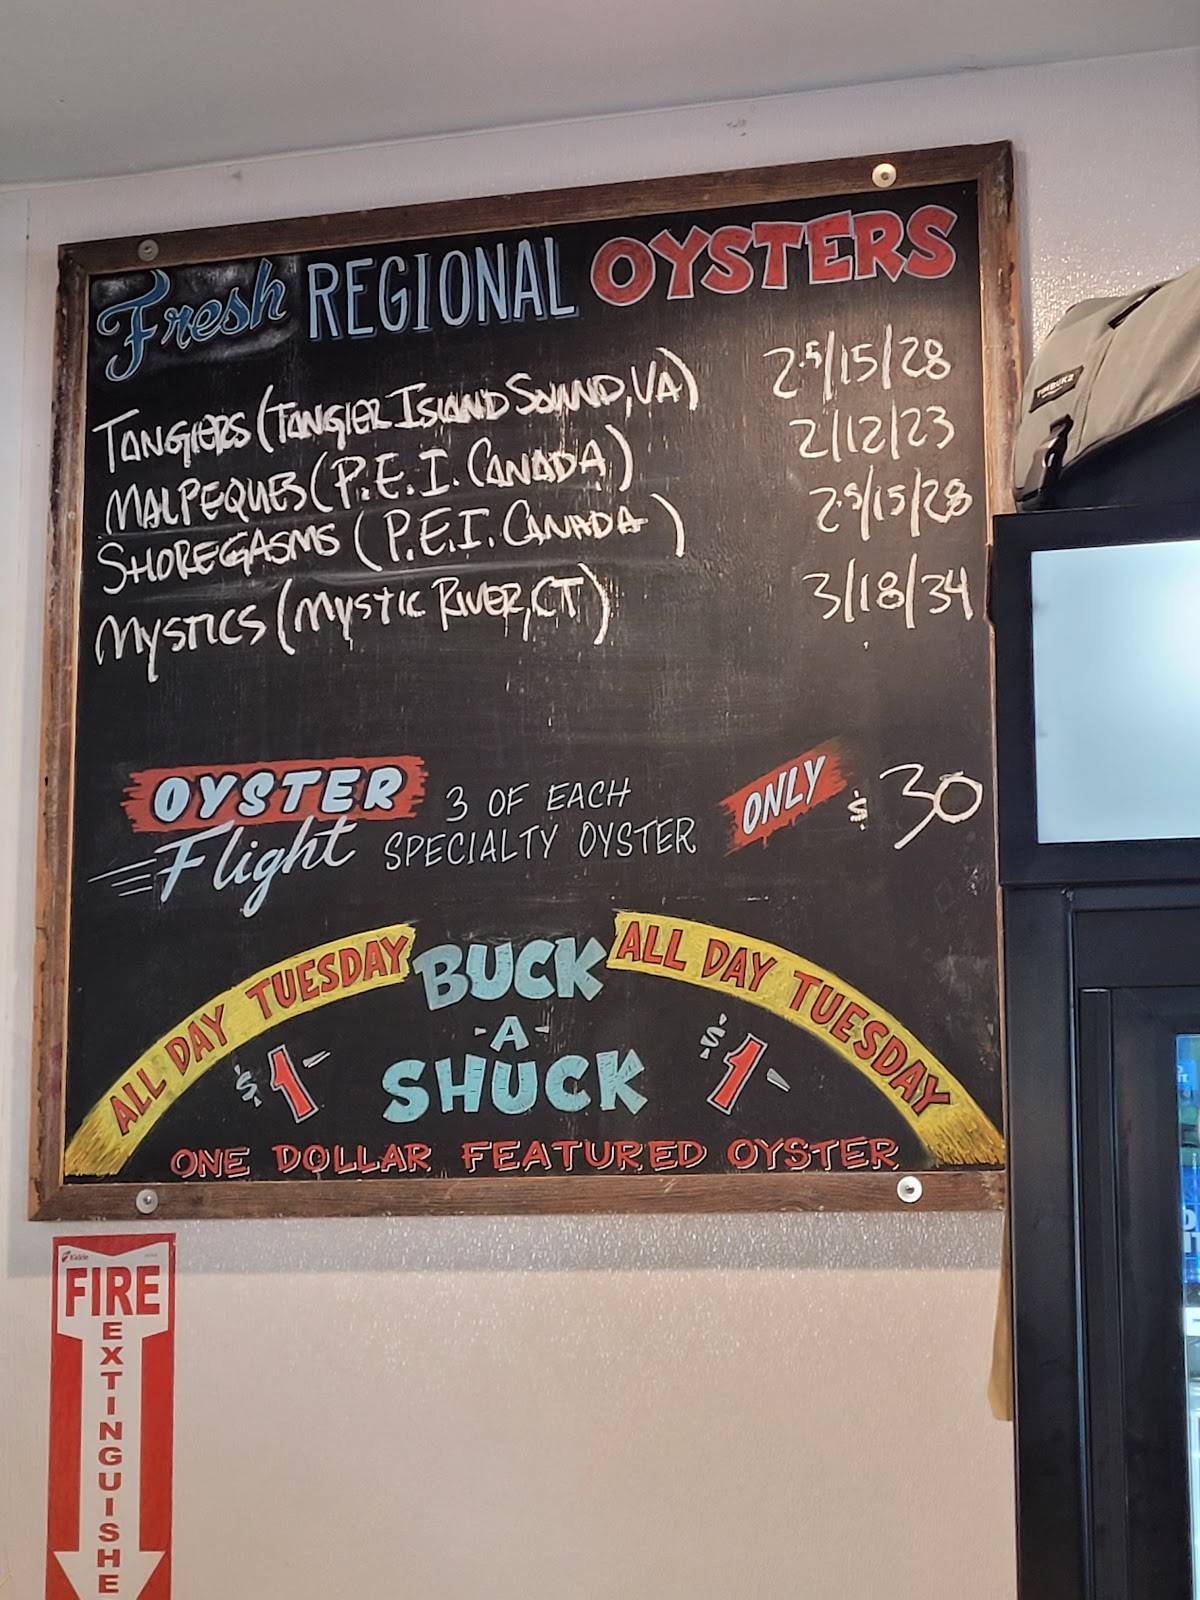 Fresh REGIONAL OYSTERS
TANGIERS (TANGIER ISLAND SOUND, VA) 2.5/15/28
MALPEQUES (P.E.I. CANADA) 2/12/23
SHOREGASMS (P.E.I. CANADA) 2.5/15/28
MYSTICS (MYSTIC RIVER, CT) 3/18/34
OYSTER Flight
3 OF EACH
SPECIALTY OYSTER
ONLY $30
ALL DAY TUESDAY BUCK ALL DAY TUESDAY
-A-
$1 SHUCK $1
ONE DOLLAR FEATURED OYSTER
TIMBUK2
Kidde
FIRE
EXTINGUISHE